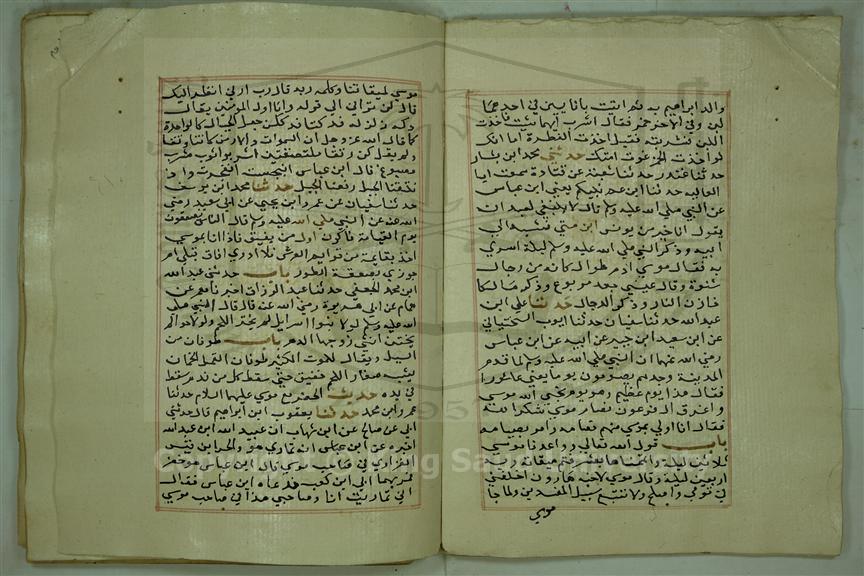 والد ابراهيم به ثم اتيت باناين في احدهما
لبن وفي الاخر خمر فقال اشرب ايهما شئت فاخذت
اللبن فشربته فقيل اخذت الفطرة اما انك
لو اخذت الخمر غوت امتك حدثني محمد ابن بشار
حدثنا غندر حدثنا شعبة عن قتادة سمعت ابا
العاليه حدثنا ابن عم نبيكم يعني ابن عباس
عن النبي صلي الله عليه وسلم قال لا ينبغي لعبد ان
يقول انا خير من يونس ابن متي ونسبه الي
ابيه وذكر النبي صلي الله عليه وسلم ليلة اسري
به فقال موسي ادم طوال كانه من رجال
شنوة وقال عيسي جعد مربوع وذكر مالكا
خازن النار وذكر الدجال حدثنا علي ابن
عبد الله حدثنا سفيان حدثنا ايوب السختياني
عن ابن سعيد ابن جبير عن ابيه عن ابن عباس
رضي الله عنهما ان النبي صلي الله عليه وسلم لما قدم
المدينة وجدهم يصومون يوما يعني عاشورا
فقال هذا يوم عظيم وهو يوم نجي الله موسي
واغرق ال فرعون فصام موسي شكرا لله
فقال انا اولي بموسي منهم فصامه وامر بصيامه
باب قول الله تعالي وواعدنا موسي
ثلاثين ليلة واتممناها بعشر فتم ميقات ربه
اربعين ليلة وقال موسي لاخيه هارون اخلفني
في قومي واصلح ولا تتبع سبيل المفسدين ولما جا
موسي
موسي لميقاتنا وكلمه ربه قال رب ارني انظر اليك
قال لن تراني الي قوله وانا اول المومنين يقال
دكه زلزله فدكتا فدككن جعل الجبال كالواحدة
كما قال الله عز وجل ان السموات والارض كانتا رتقا
ولم يقل كن رتقا ملتصقتين اشربوا ثوب مشرب
مصبوغ قال ابن عباس انبجست انفجرت واذ
نتقنا الجبل رفعنا الجبل حدثنا محمد ابن يوسف
حدثنا سفيان عن عمرو ابن يحيي عن ابي سعيد رضي
الله عنه عن النبي صلي الله عليه وسلم قال الناس يصعقون
يوم القيامة فاكون اول من يفيق فاذا انا بموسي
اخذ بقايمة من قوايم العرش فلا ادري افاق قبلي ام
جوزي بصعقة الطور باب حدثني عبد الله
ابن محمد الجعفي حدثنا عبد الرزاق اخبرنا معمر عن
همام عن ابي هريرة رضي الله عنه قال قال النبي صلي
الله عليه وسلم لولا بنوا اسرايل لم يخنز اللحم ولولا حوا لم
تخن انثي زوجها الدهر باب طوفان من
السيل ويقال للموت الكثير طوفان القمل الحمنان
يشبه صغار الحلم حقيق حتي سقط كل من ندم سقط
في يده حديث الخضر مع موسي عليهما السلام حدثنا
عمرو ابن محمد حدثنا يعقوب ابن ابراهيم قال حدثني
ابي عن صالح عن ابن شهاب ان عبيد الله ابن عبد الله
اخبره عن ابن عباس انه تماري هو والحر ابن قيس
الفزاري في صاحب موسي قال ابن عباس هو خضر
فمر بهما ابي ابن كعب فدعاه ابن عباس فقال
اني تماريت انا وصاحبي هذا في صاحب موسي